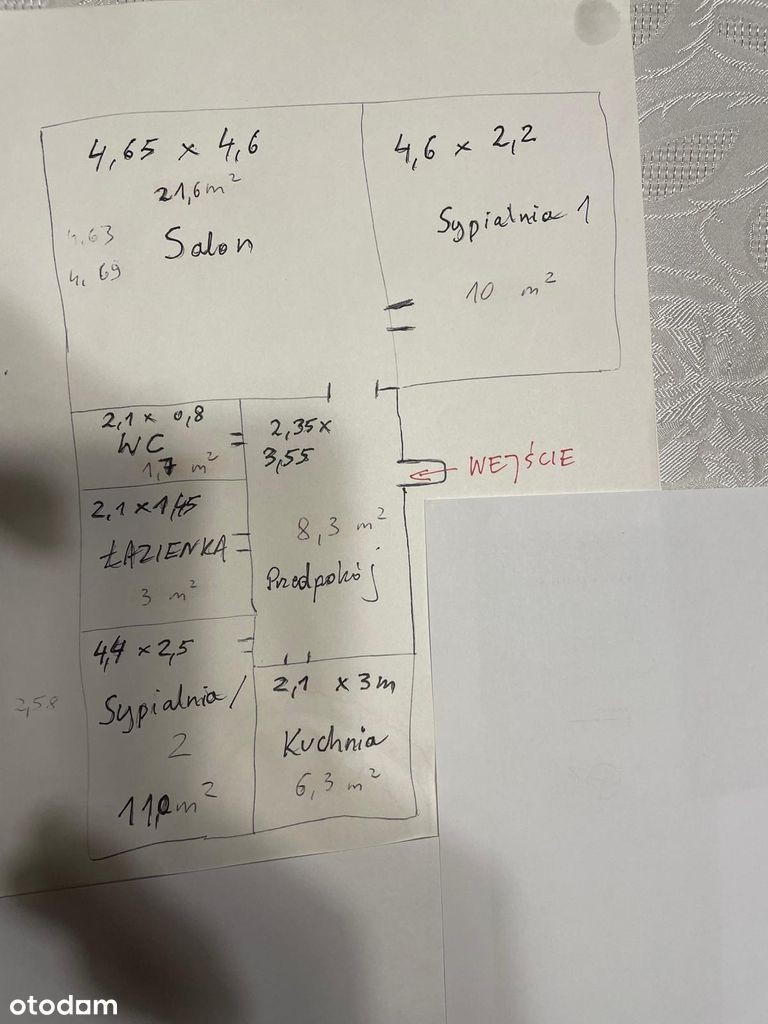 4,65 x 4,6
21,6 m²
4,63
4,69
Salon
4,6 x 2,2
Sypialnia 1
10 m²
2,1 x 0,8
WC
1,7 m²
2,35 x
3,55
8,3 m²
Przedpokój
WEJŚCIE
2,1 x 1,45
ŁAZIENKA
3 m²
4,4 x 2,5
Sypialnia
2
11,0 m²
2,58
2,1 x 3m
Kuchnia
6,3 m²
otodom